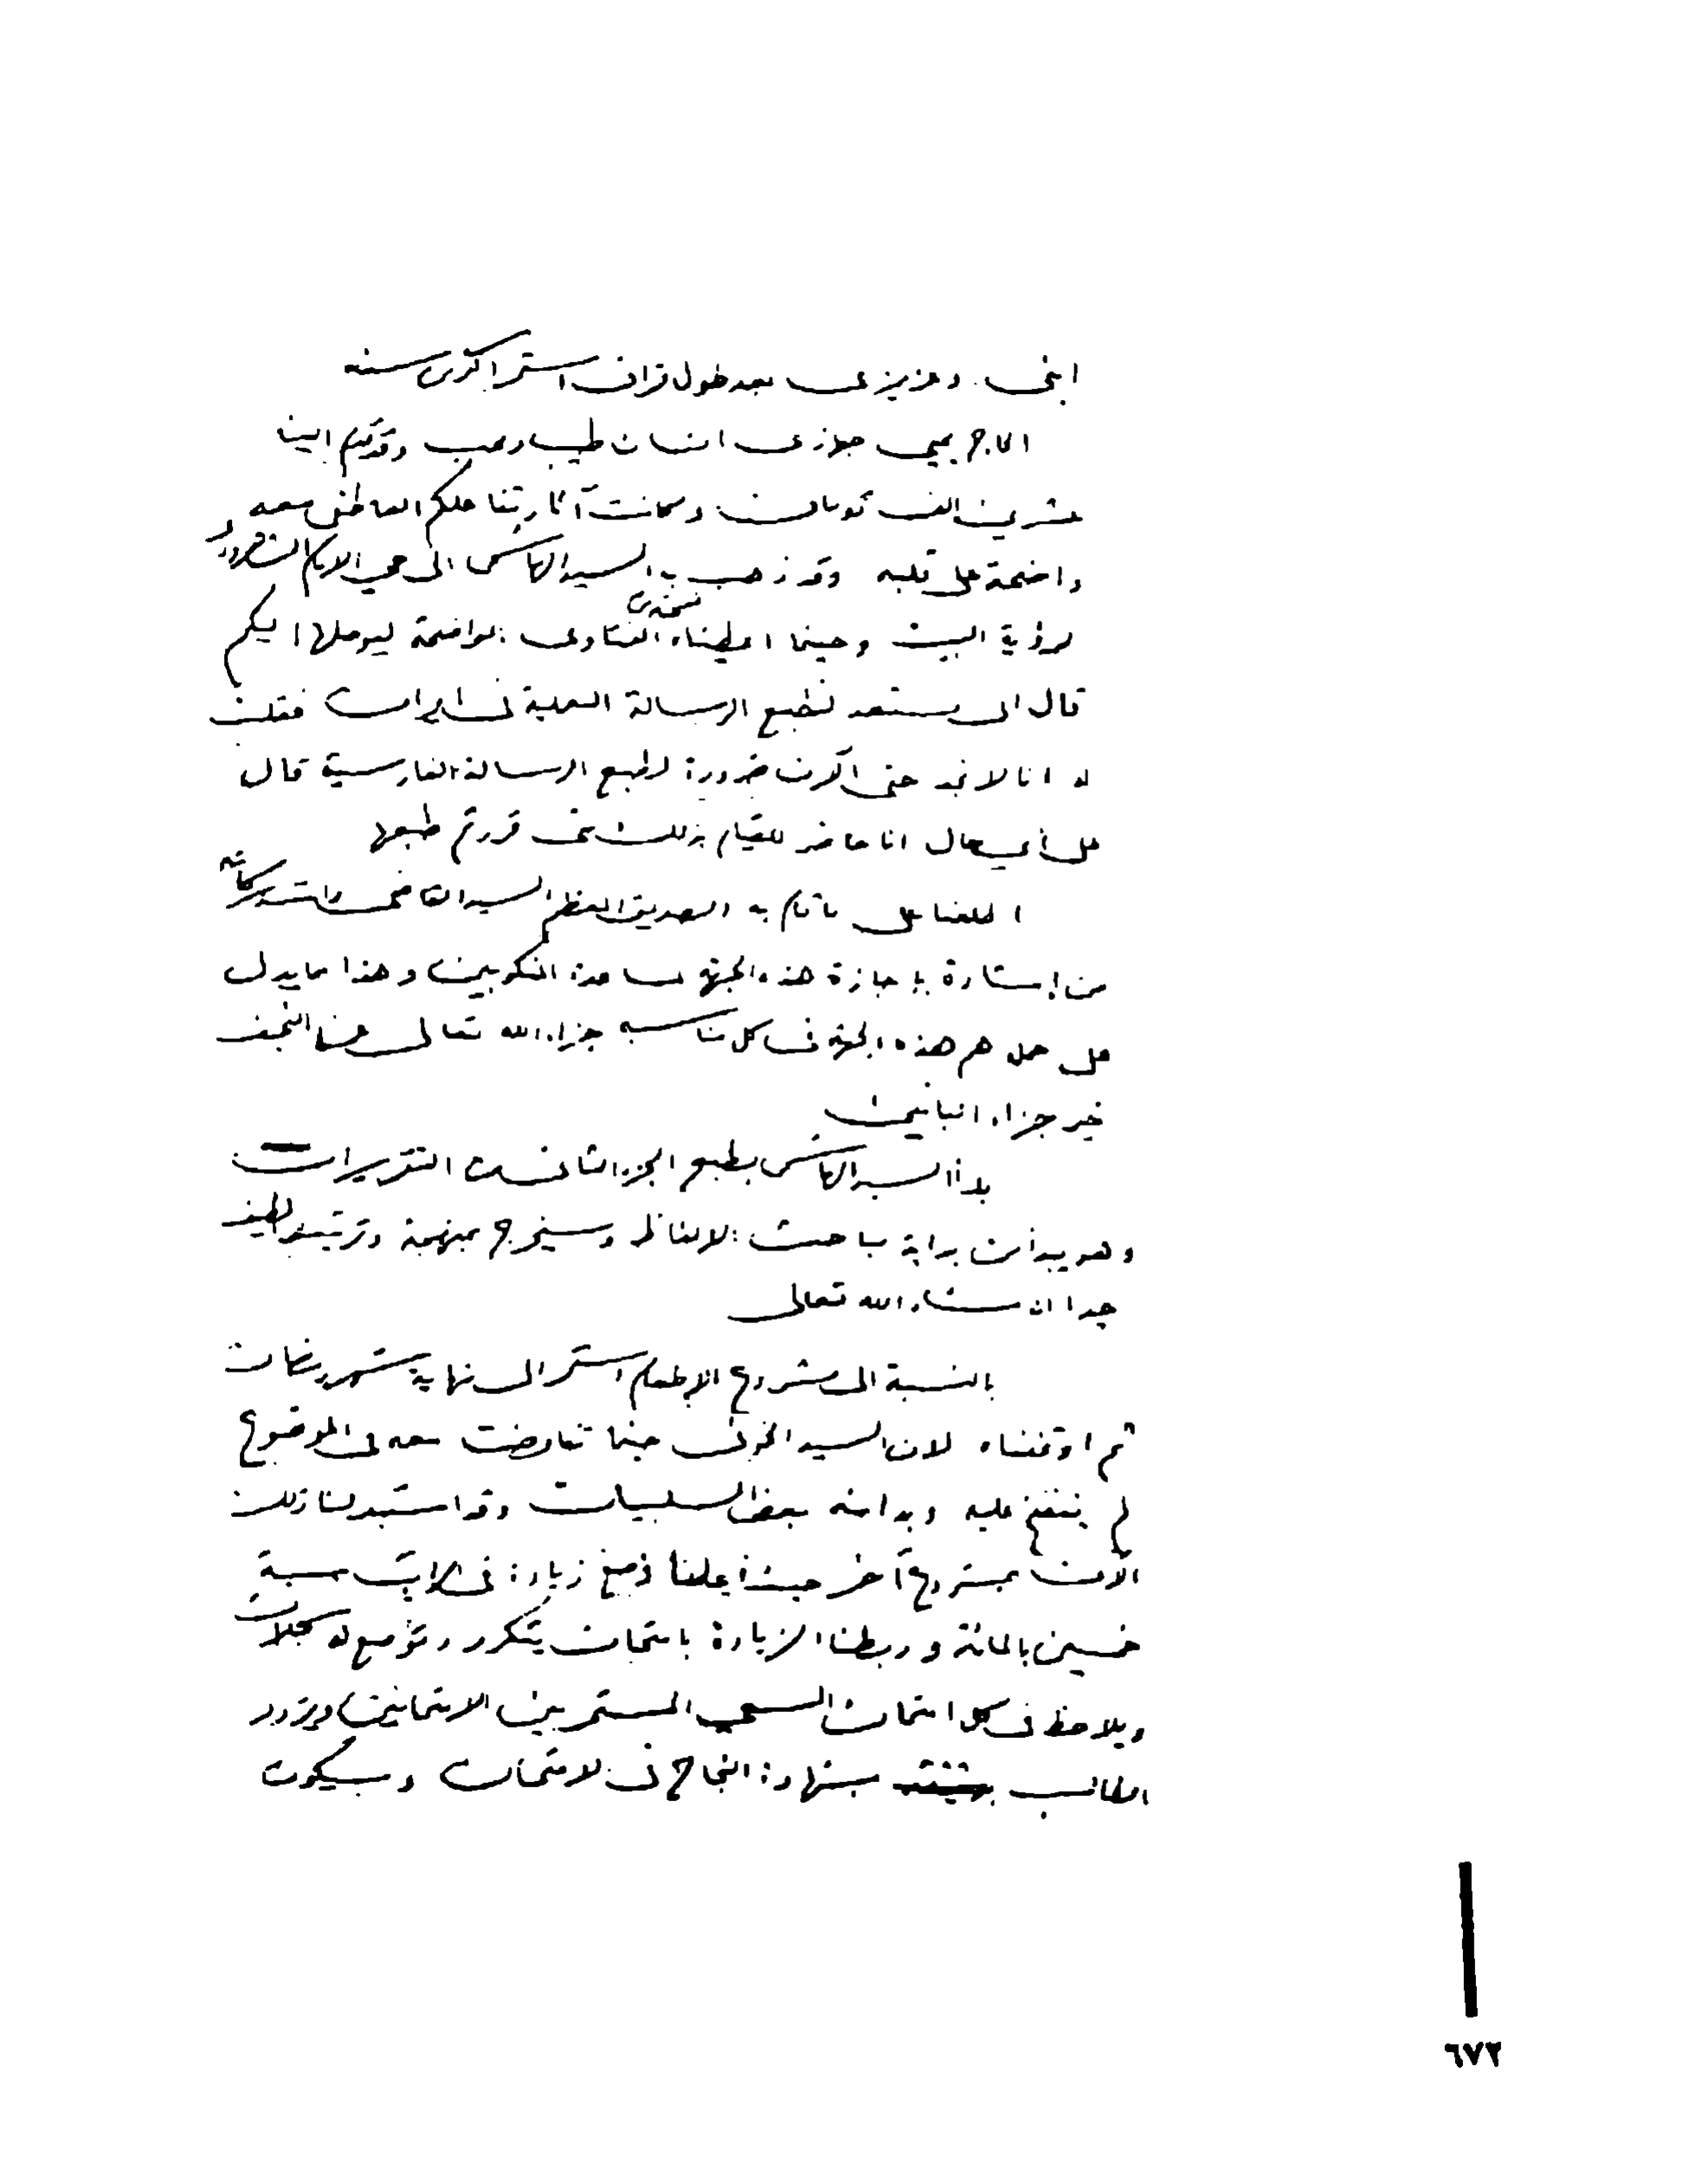 ابني وعزيزي بعد طول فراق استمر اكثر من سنه
الحاج يحيى جوازى انسان طيب ومحب وقد قدم الينا
عشرين الف تومان وكانت آثار تعاملكم العاطفي معه
واضحة على قلبه وقد ذهب به السيد الهاشمي الى حي الامام
لرؤية البيت وحينما اعطيناه نسختين الفتاوى الواضحة ليوصلها اليكم
قال انى مستعد لطبع الرسالة العملية في ايران فقلت
له انا لا نجد حتى الآن ضرورة لطبع الرسالة الفارسية قال
على أي حال انا حاضر للقيام بذلك متى قررتم طبعها
اطلعنا على ما قام به الصديق المعظم السيد القاضي
من استشارة بإجازة هذه الجهة لمساعدة المنكوبين وهذا ما يدل
على حمله هم هذه الجهة في كل مناسبه جزاه الله تعالى عن النجف
خير جزاء البانين
بدأ السيد الهاشمي بطبع الجزء الثاني من التقريرات
وهو يبدأ من بداية مباحث الالفاظ وسيخرج بمنهجة وترتيب لطيف
جدا ان شاء الله تعالى
بالنسبة الى مشروع الإطعام استمر الى نهاية شهر رمضان
ثم اوقفناه لان السيد الخوئي حينما تفاوضت معه في الموضوع
لم ينفتح عليه وبدا منه بعض السلبيات وقد استبدلنا ذلك
الآن بمشروع آخر حيث أعلنا وضع زيادة في الراتب بنسبة
خمسين بالمائة وربطنا الزيادة بامتحان يتكرر وتوضع له سجلات
ويلاحظ في كل امتحان السعي المستمر بين الامتحانين ويزود
الطالب بشهادة النجاح في الامتحان وسيكون
٦٧٢